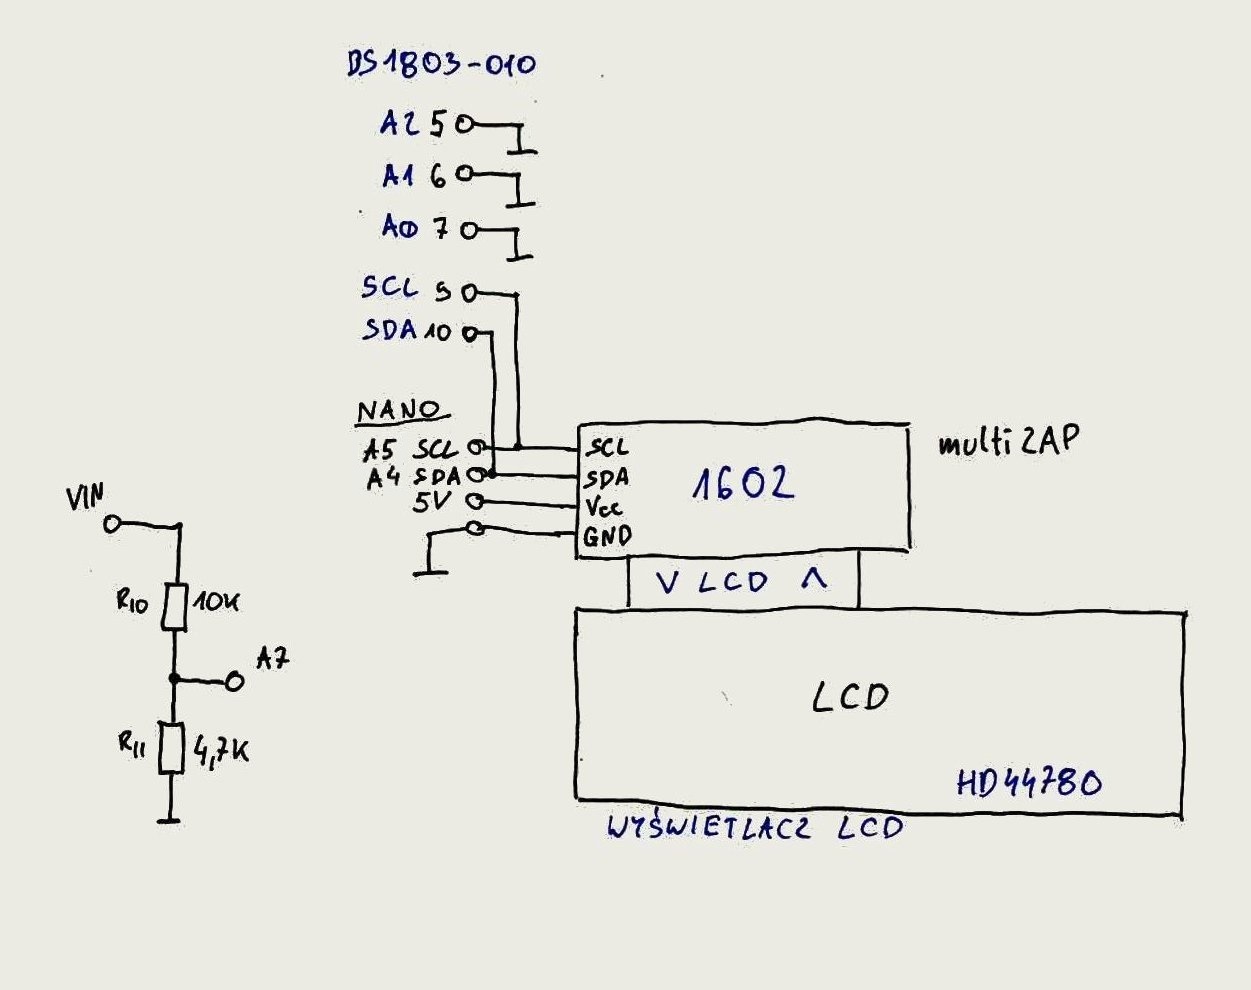 DS1803-010
A2 5
A1 6
A0 7
SCL 9
SDA 10
NANO
A5 SCL
A4 SDA
5V
SCL
SDA
Vcc
GND
1602
multiZAP
V LCD Λ
LCD
HD44780
WYŚWIETLACZ LCD
VIN
R10 10K
A7
R11 4,7K